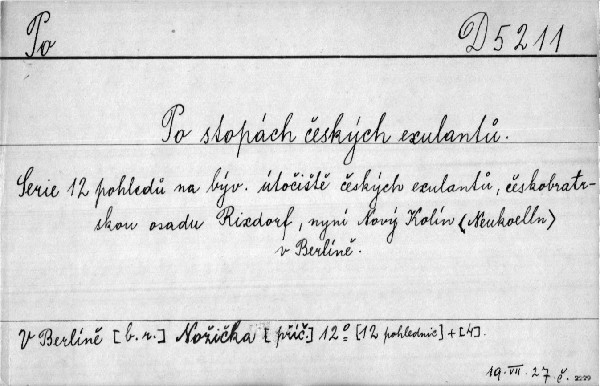 Po D 5211
Po stopách českých exulantů.
Serie 12 pohledů na býv. útočiště českých exulantů, českobratr-
skou osadu Rixdorf, nyní Nový Kolín (Neukoelln)
v Berlíně.
V Berlíně [b. r.] Nožička [příč] 12° [12 pohlednic] + [4].
19. VII. 27. č.